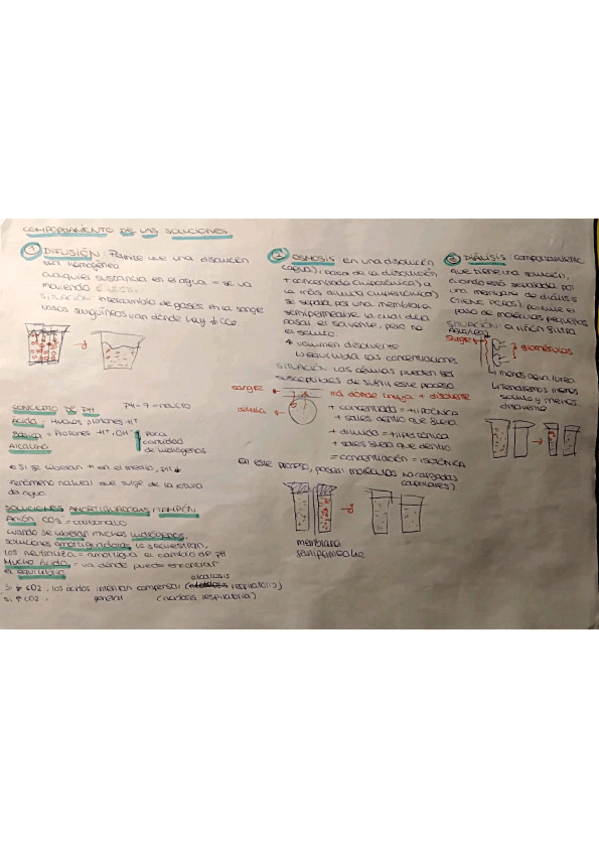 COMPORTAMIENTO DE LAS SOLUCIONES
1 DIFUSIÓN: Permite que una disolución
sea homogénea
cualquier sustancia en el agua = se va
moviendo
SITUACIÓN: intercambio de gases en la sangre
vasos sanguíneos van donde hay CO2
CONCEPTO DE PH
PH = 7 = neutro
Ácido = muchos protones H+
Básica = Protones H+, OH-
Alcalino
Poca
cantidad
de hidrógenos
Si se liberan H+ en el medio, pH ↓
Fenómeno natural que surge de la rotura
del agua.
SOLUCIONES AMORTIGUADORAS / TAMPÓN
Anión CO3 = carbonato
cuando se liberan muchos hidrógenos,
soluciones amortiguadoras lo secuestran,
los neutraliza = amortigua el cambio de PH
Mucho ácido = va donde pueda encontrar
el equilibrio
Si ↓ CO2, los ácidos intentan compensar (alcalosis respiratoria)
Si ↑ CO2, general (acidosis respiratoria)
2 OSMOSIS en una disolución
(agua), pasa de la disolución
+ concentrada (hipertónica) a
la más diluida (hipotónica)
se separa por una membrana
semipermeable la cual deja
pasar el solvente, pero no
el soluto.
volumen disolvente
equilibra las concentraciones
SITUACIÓN: Las células pueden ser
susceptibles de sufrir este proceso
sangre
célula
irá donde haya + disolvente
+ concentrado = hipotónica
+ sales dentro que fuera
+ diluido = hipertónica
+ sales fuera que dentro
= concentración = isotónica
En este proceso, pasan moléculas no cargadas
membrana
semipermeable
3 DIÁLISIS comportamiento
que tiene una solución,
cuando está separada por
una membrana de diálisis
(tiene poros) permite el
paso de moléculas pequeñas
SITUACIÓN: el riñón filtra
sangre
glomérulos
menos agua
tendremos menos
soluto y menos
disolvente